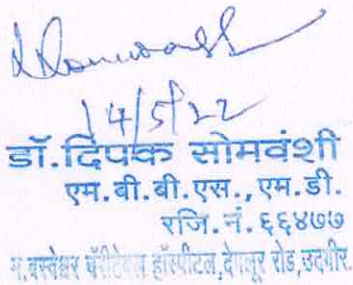 14/5/22
डॉ.दिपक सोमवंशी
एम.बी.बी.एस., एम.डी.
रजि.नं.६६४७७
म.बस्वेश्वर चॅरीटेबल हॉस्पीटल,देगलूर रोड,उदगीर.